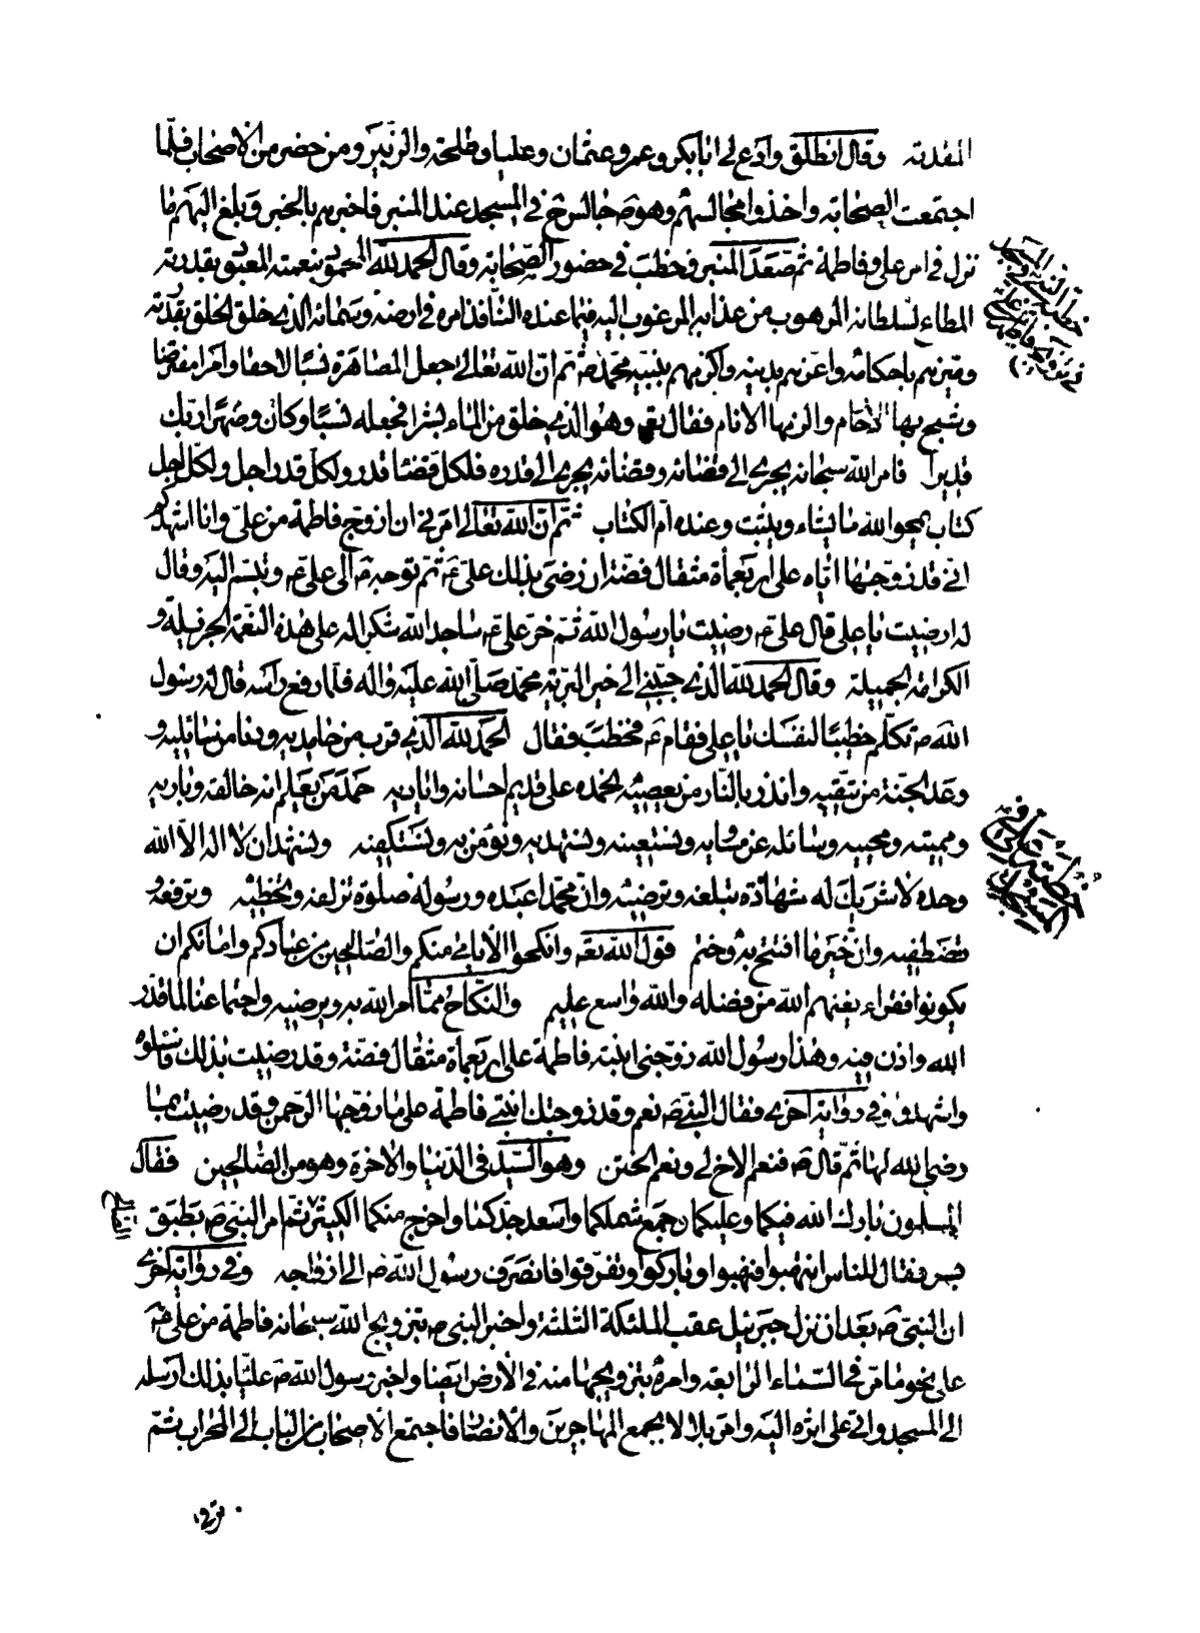 المقدسة وقال انطلق وادع لي ابابكر وعمر وعثمان وعليا وطلحة والزبير ومن حضر من الاصحاب فلما
اجتمعت الصحابة واخذوا مجالسهم وهو ص جالس في المسجد عند المنبر فاخبرهم بالخبر وبلغ اليهم ما
نزل في امر علي وفاطمة ثم صعد المنبر فخطب في حضور الصحابة وقال الحمد لله المحمود بنعمته المعبود بقدرته
المطاع لسلطانه المرهوب من عذابه المرغوب اليه فيما عنده النافذ امره في ارضه وسمائه الذي خلق الخلق بقدرته
وميزهم باحكامه واعزهم بدينه واكرمهم بنبيه محمد ص ثم ان الله تعالى جعل المصاهرة نسبا لاحقا وامرا مفترضا
وشبح بها الارحام والزمها الانام فقال تعـ وهو الذي خلق من الماء بشرا فجعله نسبا وكان وصهرا ربك
قديرا فامر الله سبحانه يجري الى قضائه وقضائه يجري الى قدره فلكل قضاء قدر ولكل قدر اجل ولكل اجل
كتاب يمحو الله ما يشاء ويثبت وعنده ام الكتاب ثم ان الله تعالى امرني ان ازوج فاطمة من علي وانا اشهدكم
اني قد زوجتها اياه على اربعمأة مثقال فضة ان رضي بذلك علي ع ثم توجه ص الى علي ع وتبسم اليه وقال
له ارضيت يا علي قال علي ع رضيت يا رسول الله ثم خر علي ع ساجدا لله شكرا له على هذه النعمة الجزيلة و
الكرامة الجميلة وقال الحمد لله الذي حببني الى خير البرية محمد صلى الله عليه واله فلما رفع رأسه قال له رسول
الله ص تكلم خطيبا لنفسك يا علي فقام ع فخطب فقال الحمد لله الذي قرب من حامديه ودنا من سائليه و
وعد الجنة من يتقيه وانذر بالنار من يعصيه نحمده على قديم احسانه واياديه حمد من يعلم انه خالقه وباريه
ومميته ومحييه وسائله عن مساويه ونستعينه ونستهديه ونؤمن به ونستكفيه ونشهد ان لا اله الا الله
وحده لا شريك له شهادة تبلغه وترضيه وان محمدا عبده ورسوله صلوة تزلفه وتحظيه وترفعه
وتصطفيه وان خير ما افتتح به وختم قول الله تعـ وانكحوا الايامى منكم والصالحين من عبادكم وامائكم ان
يكونوا فقراء يغنهم الله من فضله والله واسع عليم والنكاح مما امر الله به ويرضيه واجتماعنا لما قدر
الله واذن فيه وهذا رسول الله زوجني ابنته فاطمة على اربعمأة مثقال فضة وقد رضيت بذلك فاسئلوه
واشهدوا وفي رواية اخرى فقال النبي ص نعم وقد زوجتك ابنتي فاطمة على ما زوجها الرحمن وقد رضيت بما
رضي الله لها ثم قال ص فنعم الاخ لي ونعم الختن وهو السيد في الدنيا والاخرة وهو من الصالحين فقال
المسلمون بارك الله فيكما وعليكما وجمع شملكما واسعد جدكما واخرج منكما الكثير ثم امر النبي ص بطبق
بسر فقال للناس انتهبوا فنهبوا وباركوا وتفرقوا فانصرف رسول الله ص الى ازواجه وفي رواية اخرى
ان النبي ص بعد ان نزل جبرئيل عقب الملئكة الثلثة واخبر النبي ص بتزويج الله سبحانه فاطمة من علي ع
على نحو ما مر في السماء الرابعة وامره بتزويجها منه في الارض ايضا واخبر رسول الله ص عليا بذلك ارسله
الى المسجد واتى على اثره اليه وامر بلالا بجمع المهاجرين والانصار فاجتمع الاصحاب من الباب الى المحراب ثم